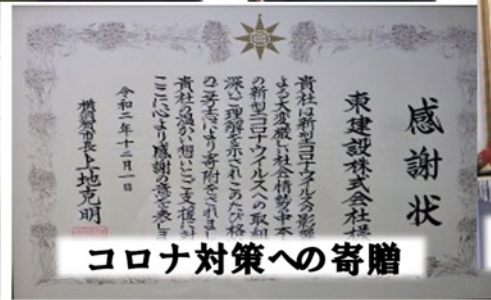 感謝状
東建設株式会社様
貴社は新型コロナウイルスの影響
よる大変厳しい社会情勢の中本
の新型コロナウイルスへの取組
深いご理解を示されこのたび格
のご芳志により寄附をされまし
貴社の温かい想いとご支援に対
ここに心より感謝の意を表しま
令和二年十二月一日
横須賀市長上地克明
コロナ対策への寄贈